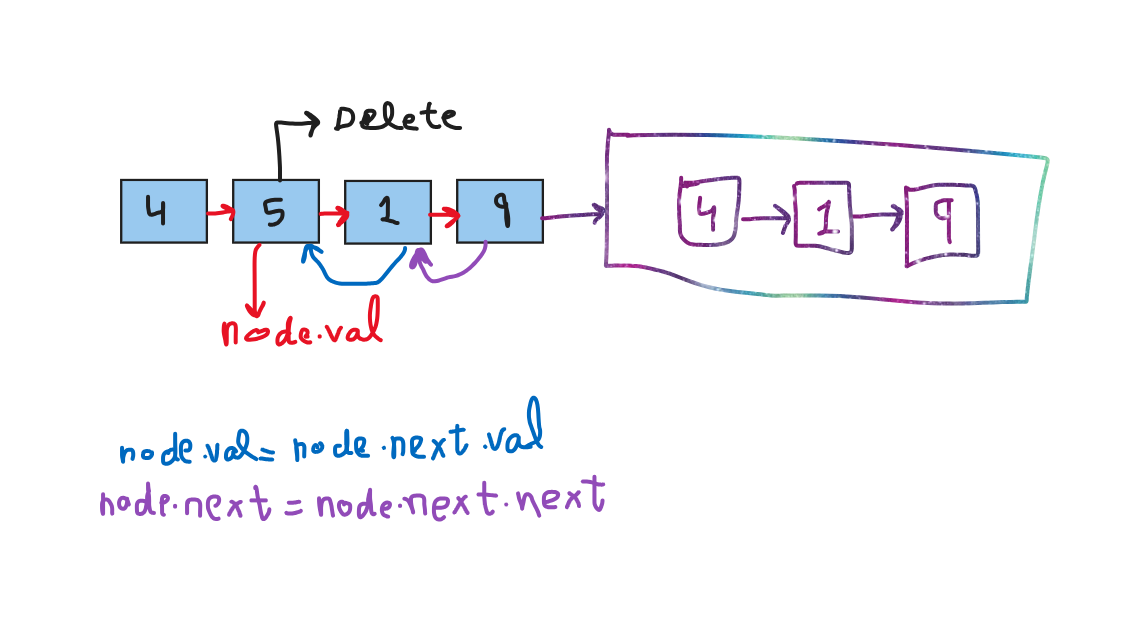 Delete
4 5 1 9
4 1 9
node.val
node.val = node.next.val
node.next = node.next.next